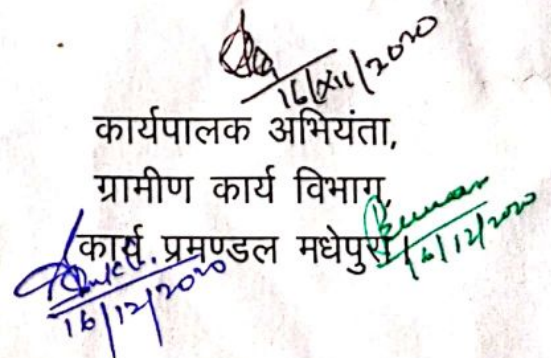 16/XII/2020
कार्यपालक अभियंता,
ग्रामीण कार्य विभाग,
कार्य प्रमण्डल मधेपुरा।
16/12/2020
16/12/2020